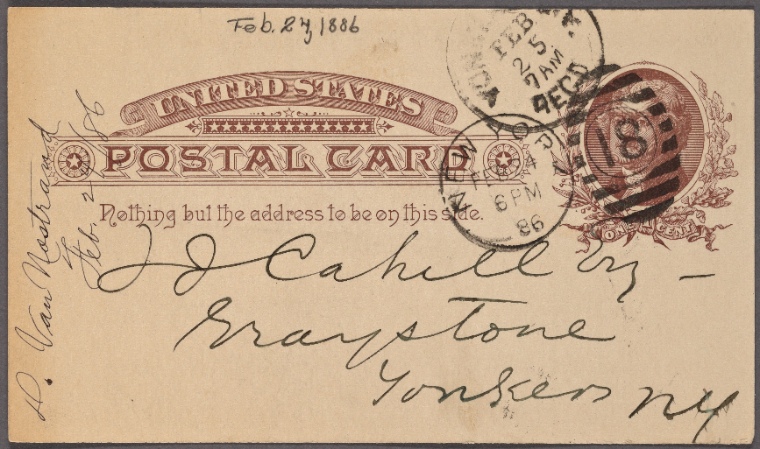 Feb. 27, 1886
UNITED STATES
POSTAL CARD
Nothing but the address to be on this side.
YONK
FEB
25
7AM
REC'D
NEW
FEB 24
6 PM
86
18
ONE CENT
Cahill Esq -
Graystone
Yonkers NY
D. Van Nostrand
Feb. 24 /86